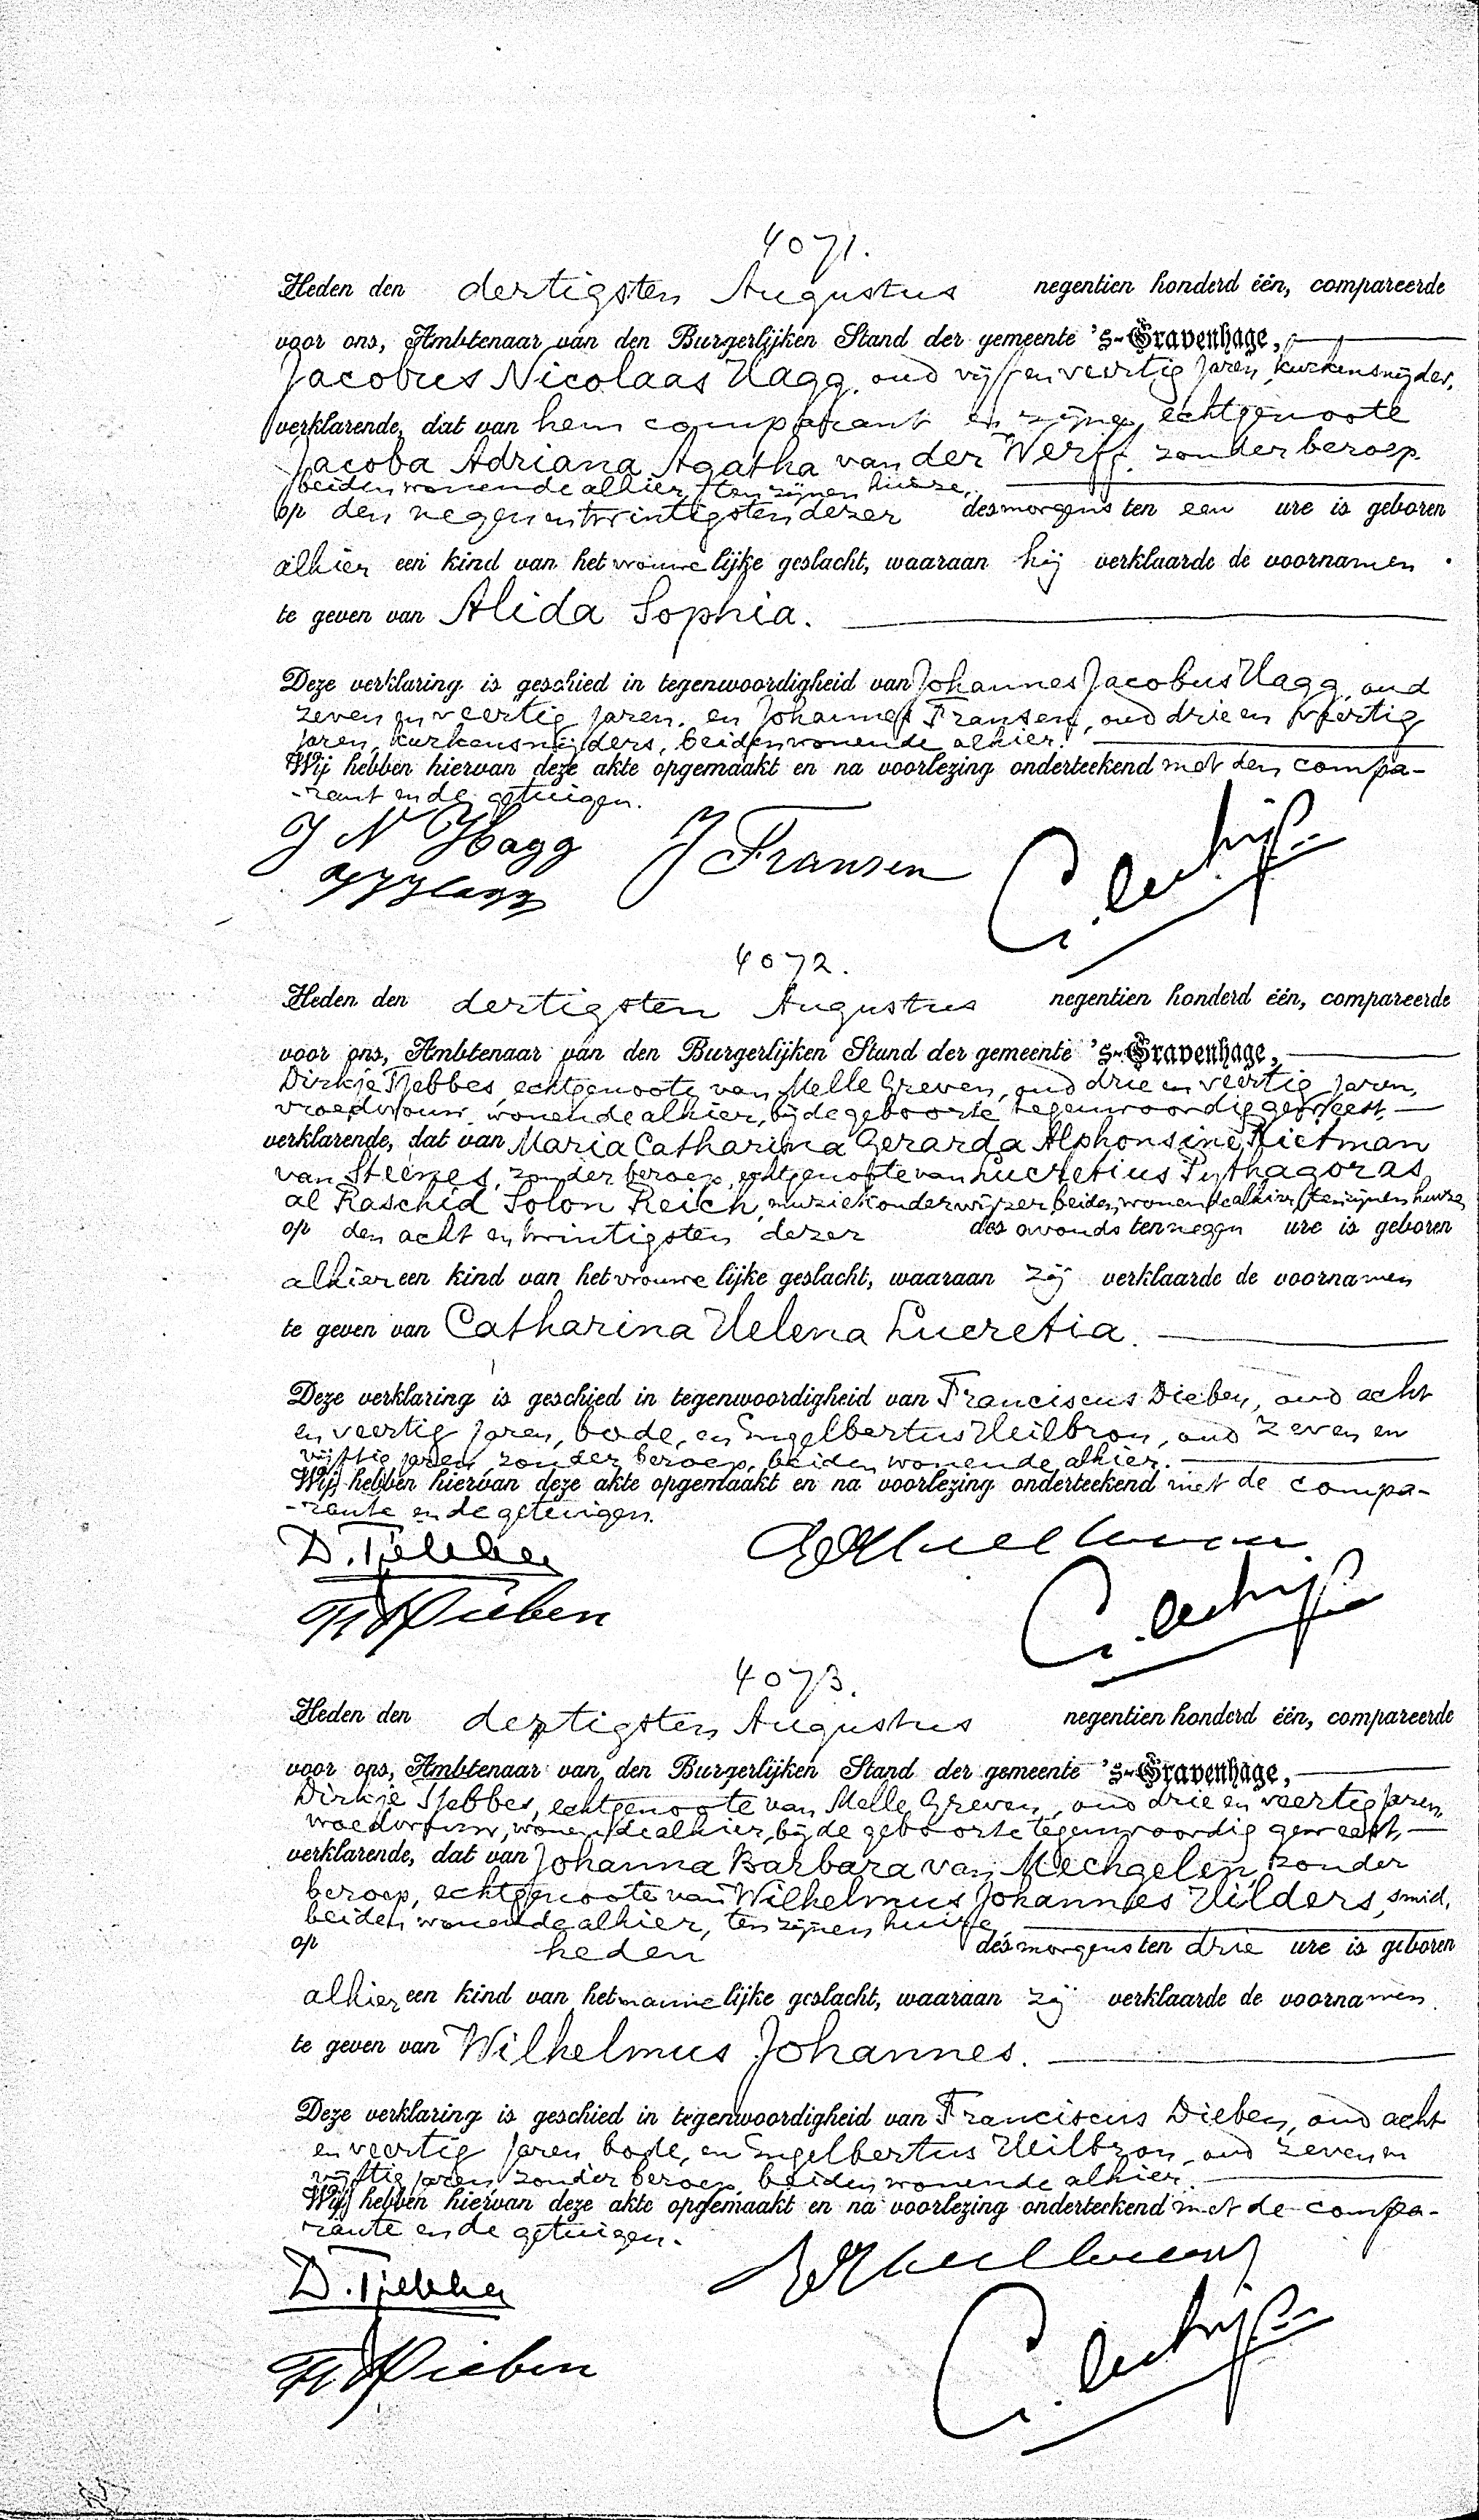 4071.
Heden den dertigsten Augustus negentien honderd één, compareerde
voor ons, Ambtenaar van den Burgerlijken Stand der gemeente 's-Gravenhage,
Jacobus Nicolaas Hagg, oud vijf en veertig jaren, kurkensnijder,
verklarende, dat van hem comparant en zijne echtgenoote
Jacoba Adriana Agatha van der Werff, zonder beroep
beiden wonende alhier, ten zijnen huize,
op den negen en twintigsten dezer des morgens ten een ure is geboren
alhier een kind van het vrouwelijke geslacht, waaraan hij verklaarde de voornamen
te geven van Alida Sophia.
Deze verklaring is geschied in tegenwoordigheid van Johannes Jacobus Hagg, oud
zeven en veertig jaren, en Johannes Fransen, oud drie en veertig
jaren, kurkensnijders, beiden wonende alhier.
Wij hebben hiervan deze akte opgemaakt en na voorlezing onderteekend met den compa-
-rant en de getuigen.
J N Hagg J Fransen
J J Hagg
4072.
Heden den dertigsten Augustus negentien honderd één, compareerde
voor ons, Ambtenaar van den Burgerlijken Stand der gemeente 's-Gravenhage,
Dirkje Tjebbes, echtgenoote van Melle Greven, oud drie en veertig jaren,
vroedvrouw, wonende alhier, bij de geboorte tegenwoordig geweest,
verklarende, dat van Maria Catharina Gerarda Alphonsine Rietman
van Steenes, zonder beroep, echtgenoote van Lucretius Pythagoras
al Raschid Solon Reich, muziekonderwijzer beiden wonende alhier, ten zijnen huize,
op den acht en twintigsten dezer des avonds ten negen ure is geboren
alhier een kind van het vrouwelijke geslacht, waaraan zij verklaarde de voornamen
te geven van Catharina Helena Lucretia.
Deze verklaring is geschied in tegenwoordigheid van Franciscus Dieben, oud acht
en veertig jaren, bode, en Engelbertus Heilbron, oud zeven en
vijftig jaren, zonder beroep, beiden wonende alhier.
Wij hebben hiervan deze akte opgemaakt en na voorlezing onderteekend met de compa-
-rante en de getuigen.
D. Tjebbes
Fr Dieben
4073.
Heden den dertigsten Augustus negentien honderd één, compareerde
voor ons, Ambtenaar van den Burgerlijken Stand der gemeente 's-Gravenhage,
Dirkje Tjebbes, echtgenoote van Melle Greven, oud drie en veertig jaren,
vroedvrouw, wonende alhier, bij de geboorte tegenwoordig geweest,
verklarende, dat van Johanna Barbara van Mechgelen, zonder
beroep, echtgenoote van Wilhelmus Johannes Hilders, smid,
beiden wonende alhier, ten zijnen huize,
op heden des morgens ten drie ure is geboren
alhier een kind van het mannelijke geslacht, waaraan zij verklaarde de voornamen
te geven van Wilhelmus Johannes.
Deze verklaring is geschied in tegenwoordigheid van Franciscus Dieben, oud acht
en veertig jaren bode, en Engelbertus Heilbron, oud zeven en
vijftig jaren zonder beroep, beiden wonende alhier.
Wij hebben hiervan deze akte opgemaakt en na voorlezing onderteekend met de compa-
rante en de getuigen.
D. Tjebbes
Fr Dieben